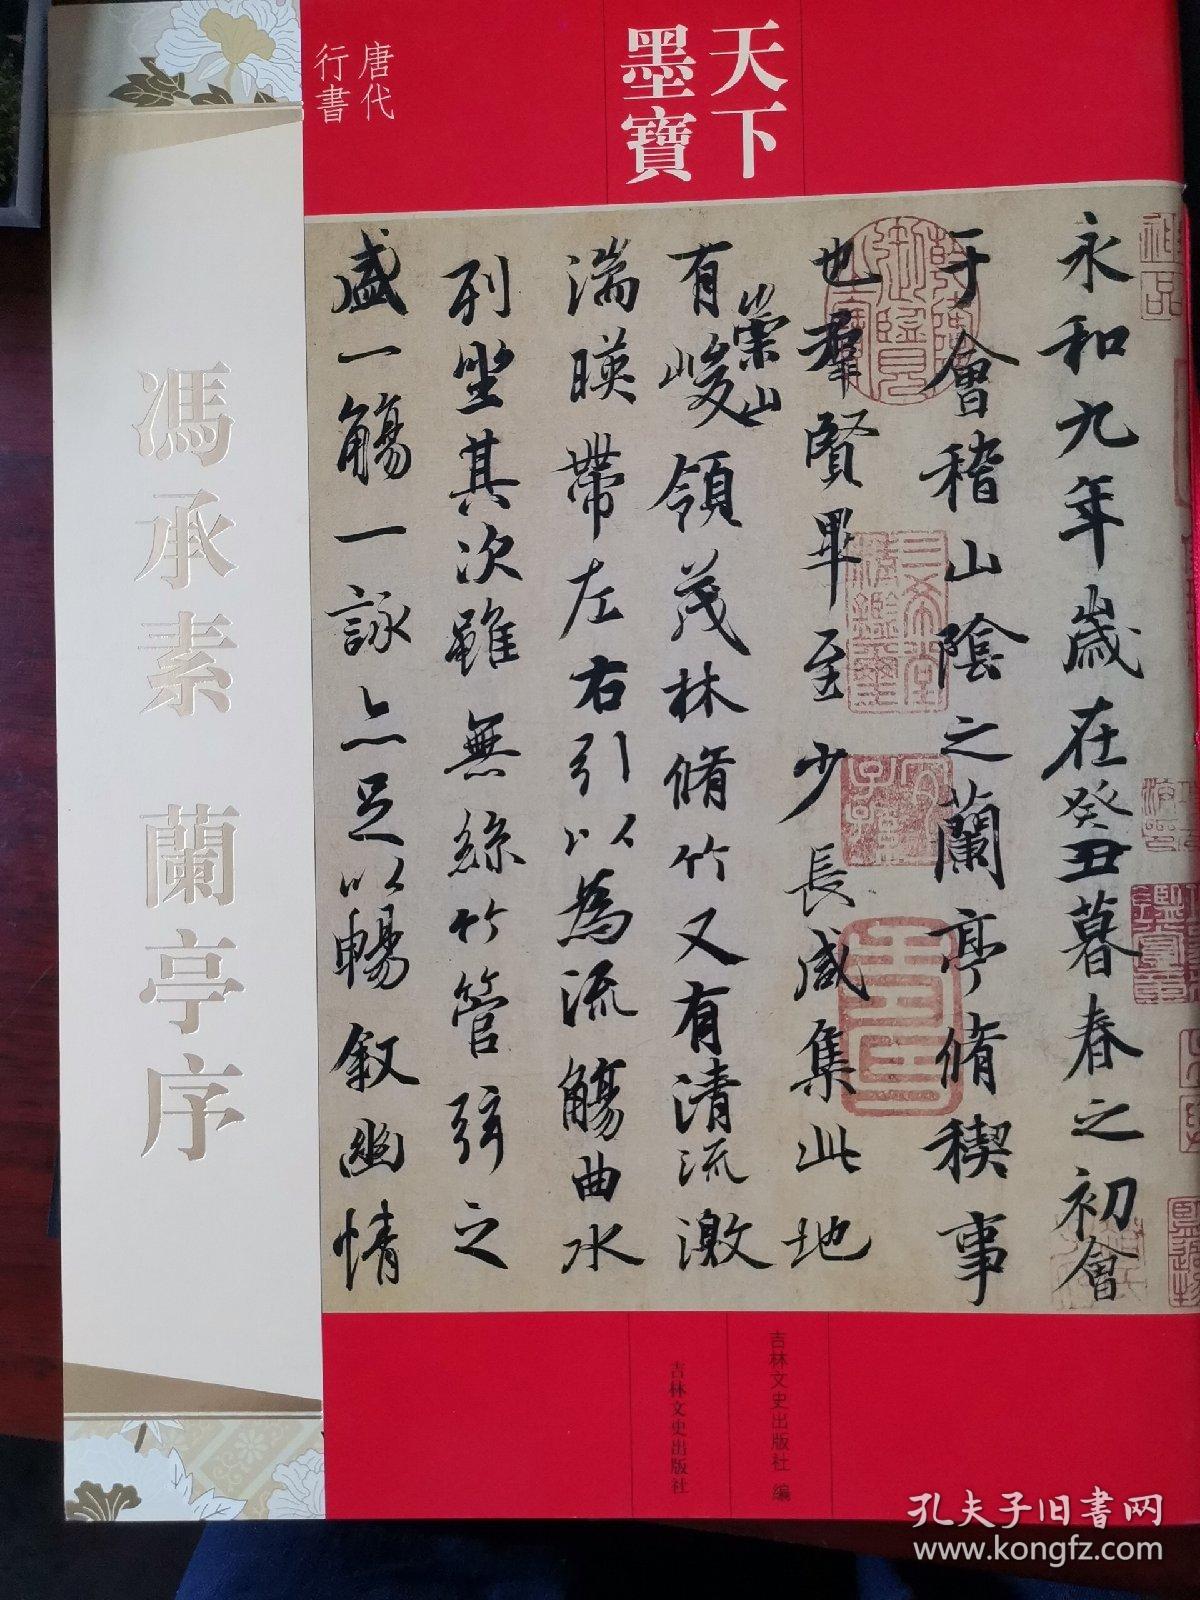 天下
墨寶
唐代
行書
馮承素 蘭亭序
永和九年歲在癸丑暮春之初會
于會稽山陰之蘭亭脩稧事
也羣賢畢至少長咸集此地
有崇山峻領茂林脩竹又有清流激
湍暎帶左右引以為流觴曲水
列坐其次雖無絲竹管弦之
盛一觴一詠亦足以暢敘幽情
吉林文史出版社 編
吉林文史出版社
孔夫子旧书网
www.kongfz.com